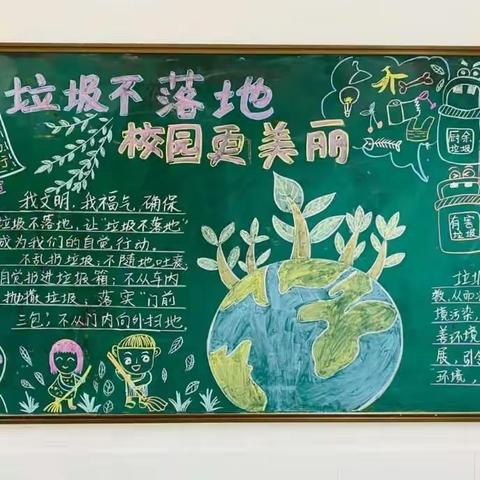 垃圾不落地
校园更美丽
我文明,我福气,确保
垃圾不落地,让"垃圾不落地"
成为我们的自觉行动。
不乱扔垃圾;不随地吐痰
自觉扔进垃圾箱;不从车内
抛撒垃圾;落实"门前
三包";不从门内向外扫地。
厨余
垃圾
有害
垃圾
垃圾
数,从而
境污染,
善环境
展,引
环境,